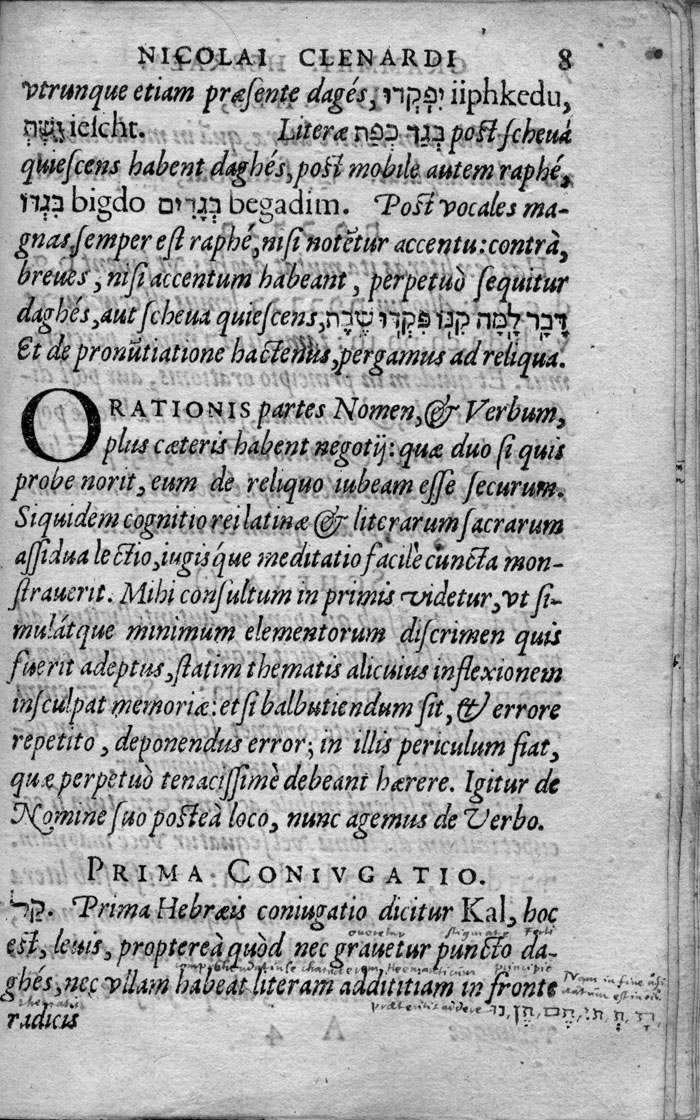 NICOLAI CLENARDI 8
vtrunque etiam præsente dagés, יִפְקְדוּ iiphkedu,
iescht. Literæ בְּגַד כְּפַת post scheua
quiescens habent daghés, post mobile autem raphé,
בִּגְדּוֹ bigdo בְּגָדִים begadim. Post vocales ma-
gnas semper est raphé, nisi notētur accentu: contrà,
breues, nisi accentum habeant, perpetuò sequitur
daghés, aut scheua quiescens, דָּבָר לָמָּה קַנּוֹ פִּקְדוּ שֶׁבֶת
Et de pronūtiatione hactenus, pergamus ad reliqua.
ORATIONIS partes Nomen, & Verbum,
plus cæteris habent negotij: quæ duo si quis
probe norit, eum de reliquo iubeam esse securum.
Siquidem cognitio rei latinæ & literarum sacrarum
assidua lectio, iugisque meditatio facilè cuncta mon-
strauerit. Mihi consultum in primis videtur, vt si-
mulátque minimum elementorum discrimen quis
fuerit adeptus, statim thematis alicuius inflexionem
insculpat memoriæ: etsi balbutiendum sit, & errore
repetito, deponendus error; in illis periculum fiat,
quæ perpetuò tenacissimè debeant hærere. Igitur de
Nomine suo posteà loco, nunc agemus de Verbo.
PRIMA CONIVGATIO.
קַל. Prima Hebræis coniugatio dicitur Kal, hoc
est, leuis, proptereà quòd nec grauetur puncto da-
ghés, nec vllam habeat literam addititiam in fronte
Nam in fine
radicis